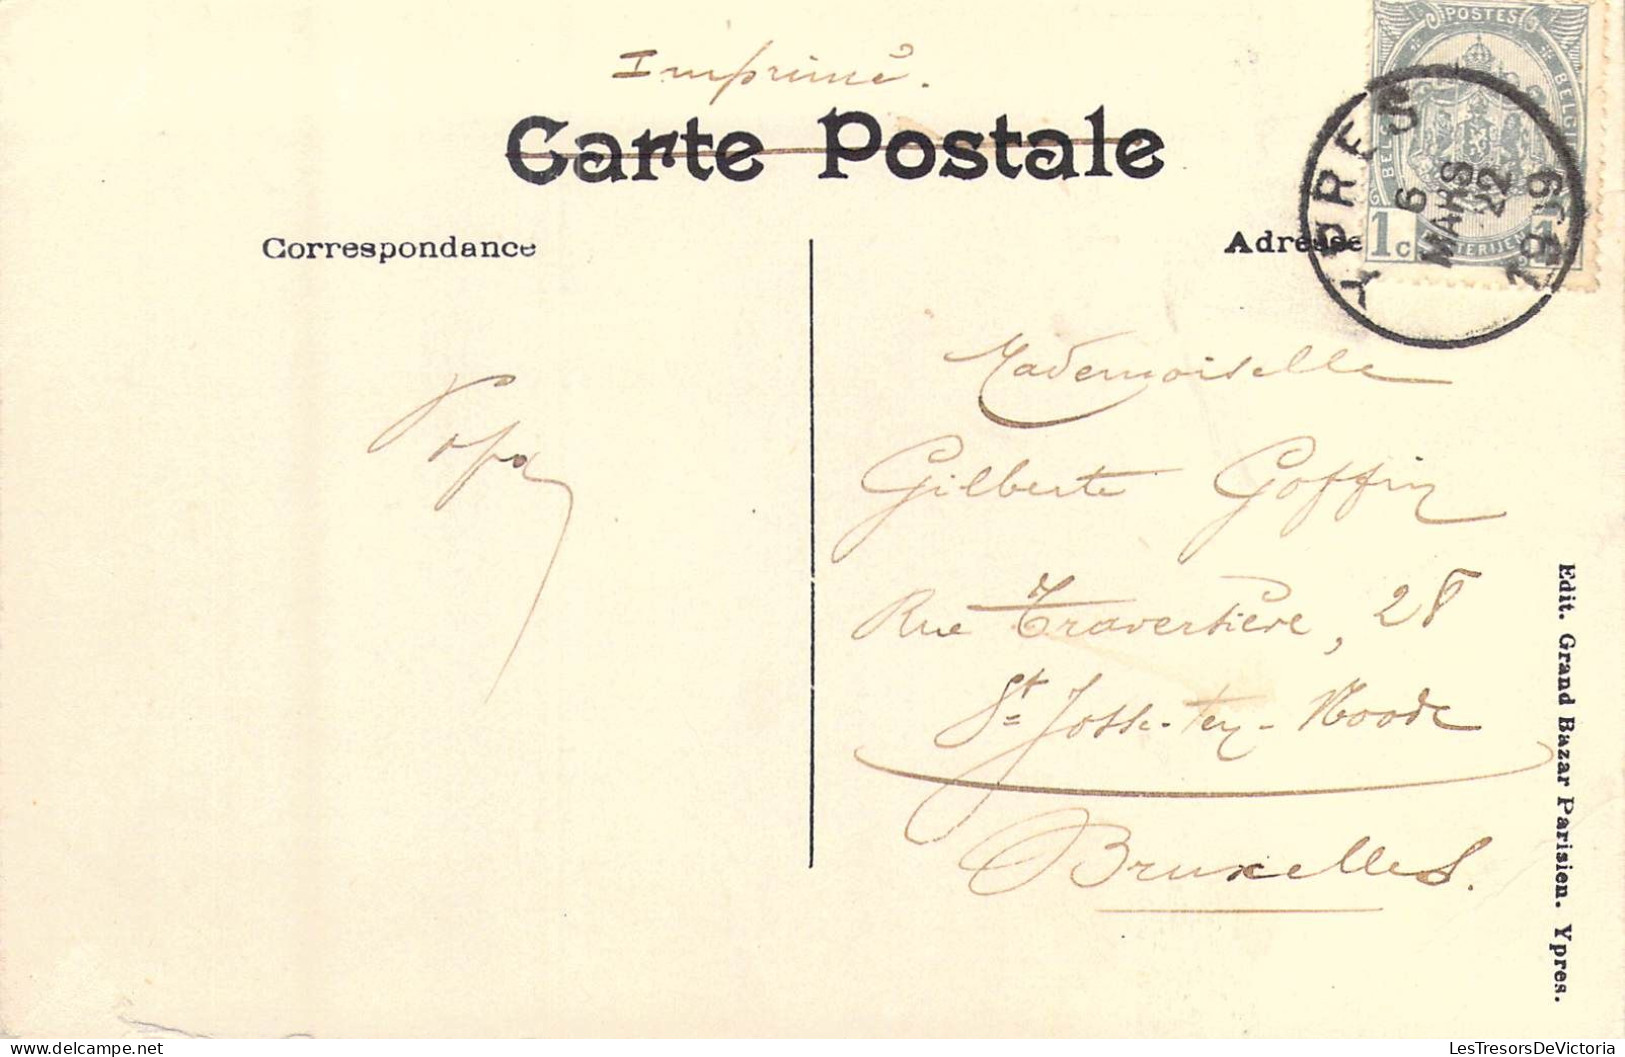 Imprimé.
Carte Postale
POSTES
BELGI
BELG
1c
1
YPRES
6
MARS
22
1909
Correspondance
Adresse
Papa
Mademoiselle
Gilberte Goffin
Rue Traversière, 28
St Josse-ten-Noode
Bruxelles.
Edit. Grand Bazar Parisien. Ypres.
LesTresorsDeVictoria